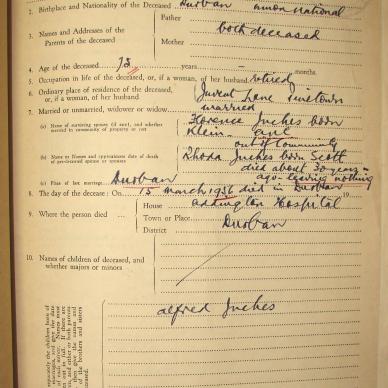 2. Birthplace and Nationality of the Deceased Durban union national
Father
3. Names and Addresses of the Parents of the deceased both deceased
Mother
4. Age of the deceased 75 years – months.
5. Occupation in life of the deceased, or, if a woman, of her husband retired
6. Ordinary place of residence of the deceased, or, if a woman, of her husband Lane Pinetown
7. Married or unmarried, widower or widow married
(a) Name of surviving spouse (if any), and whether married in community of property or not Florence Inches born
Klein and
out of community
(b) Name or Names and approximate date of death of pre-deceased spouse or spouses Rhoda Inches born Scott
died about 30 years
ago leaving nothing
(c) Place of last marriage Durban
8. The day of the decease: On 15 March 1956 died in Durban 19
9. Where the person died House Addington Hospital
Town or Place Durban
District
10. Names of children of deceased, and whether majors or minors
alfred Inches